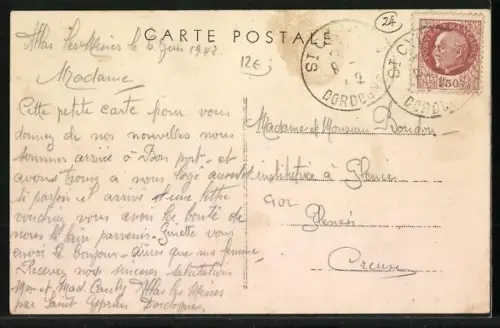 CARTE POSTALE
24
12€
Allas les Mines le 6 Juin 1942
Madame
Cette petite carte pour vous
donner de nos nouvelles nous
sommes arrivé à Bon port et
avons a nous logé
si parfois il arrivé une lettre
voudriez vous avoir la bonté de
nous la faire parvenir. Ginette vous
envoi le bonjour ainsi que ma femme
Recevez nos sincères salutations
Mr et Mad. Allas les Mines
par Saint Cyprien Dordogne
Madame et Monsieur Roudon
institutrice à Glenic
GOL
Glenic
Creuse
ST CY
DORDOGNE
ST CY
DORDOGNE
1F50